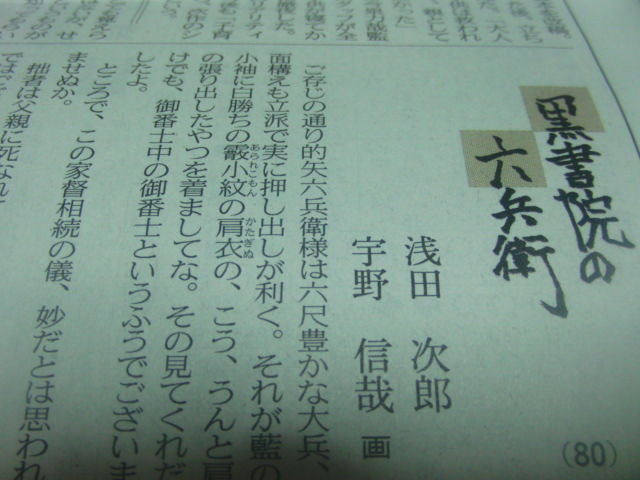 黒書院の
六兵衛
浅田 次郎
宇野 信哉 画
(80)
ご存じの通り的矢六兵衛様は六尺豊かな大兵、
面構えも立派で実に押し出しが利く。それが藍の
小袖に白勝ちの霰小紋の肩衣の、こう、うんと肩
あられこもん
かたぎぬ
の張り出したやつを着ましてな。その見てくれだ
けでも、御番士中の御番士というふうでございま
したよ。
ところで、この家督相続の儀、妙だとは思われ
ませぬか。
拙者は父親に死なれ